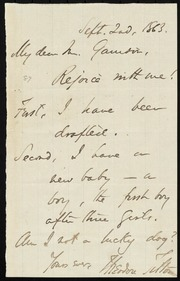 Sept. 2nd, 1863.
My dear Mr. Garrison,
Rejoice with me!
First, I have been
drafted.
Second, I have a
new baby — a
boy, the first boy
after three girls.
Am I not a lucky dog?
Yours ever Theodore Tilton